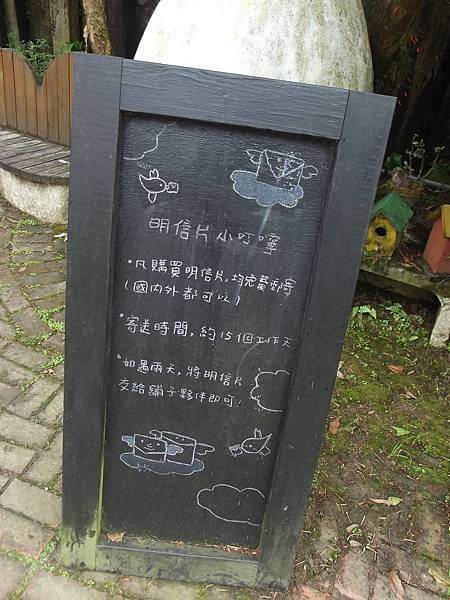 明信片小叮嚀
•凡購買明信片,均免費郵寄
(國內外都可以)
•寄送時間,約15個工作天
•如遇雨天,將明信片
交給舖子夥伴即可!